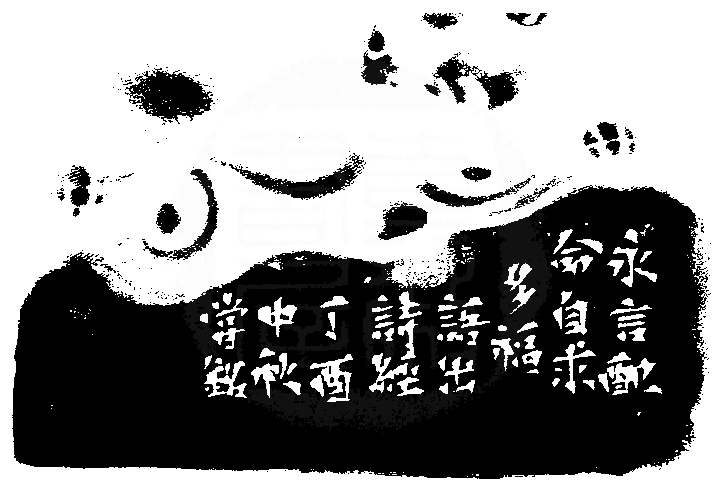 永言配
命自求
多福
語出
詩經
丁酉
中秋
銘